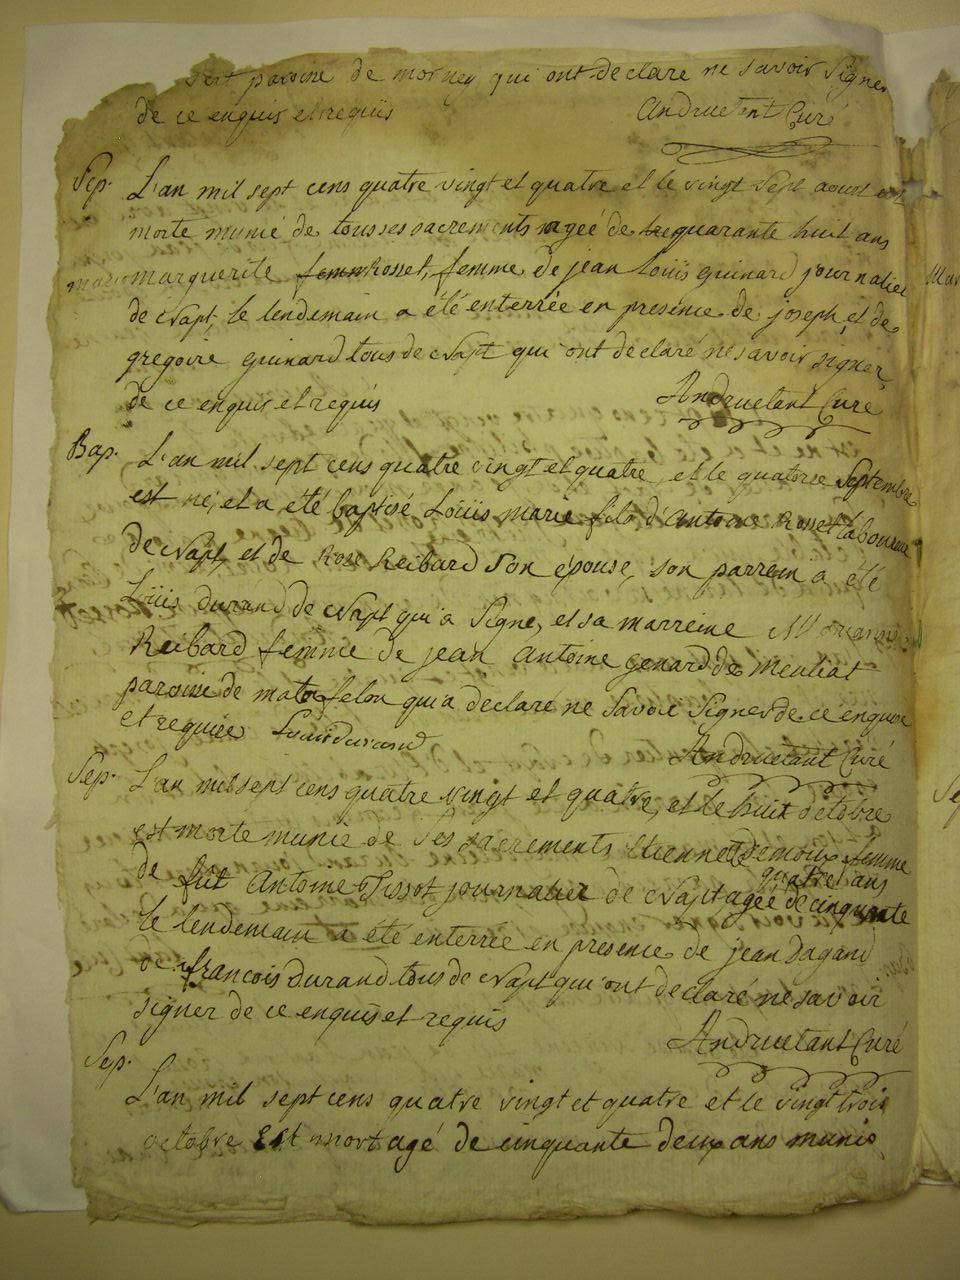 sert paroisse de mornay qui ont declaré ne savoir signer
de ce enquis et requis Andruetant Curé
Sep. L'an mil sept cens quatre vingt et quatre et le vingt sept aoust est
morte munie de tous ses sacrements agée de quarante huit ans
marguerite Rosset, femme de jean Loüis guinard journalier
de Napt, le lendemain a été enterrée en presence de joseph et de
gregoire guinard tous de Napt qui ont declaré ne savoir signer
de ce enquis et requis Andruetant Curé
Bap. L'an mil sept cens quatre vingt et quatre et le quatorse Septembre
est né, et a été baptisé Loüis marie fils d'Antoine Rosset laboureur
de Napt, et de Rose Reibard son épouse, son parrein a été
Loüis durand de Napt qui a signe, et sa marreine
Reibard femme de jean Antoine genard de meuliat
paroisse de matafelon qui a declaré ne savoir signer de ce enquise
et requise Louis durand Andruetant Curé
Sep. L'an mil sept cens quatre vingt et quatre, et le huit octobre
est morte munie de ses sacrements Etiennette demoux femme
quatre ans
de fut Antoine Tissot journalier de Napt agée de cinquante
le lendemain a été enterrée en presence de jean dagand
de françois durand tous de Napt qui ont declaré ne savoir
signer de ce enquis et requis Andruetant Curé
Sep.
L'an mil sept cens quatre vingt et quatre et le vingt trois
octobre Est mort agé de cinquante deux ans munis